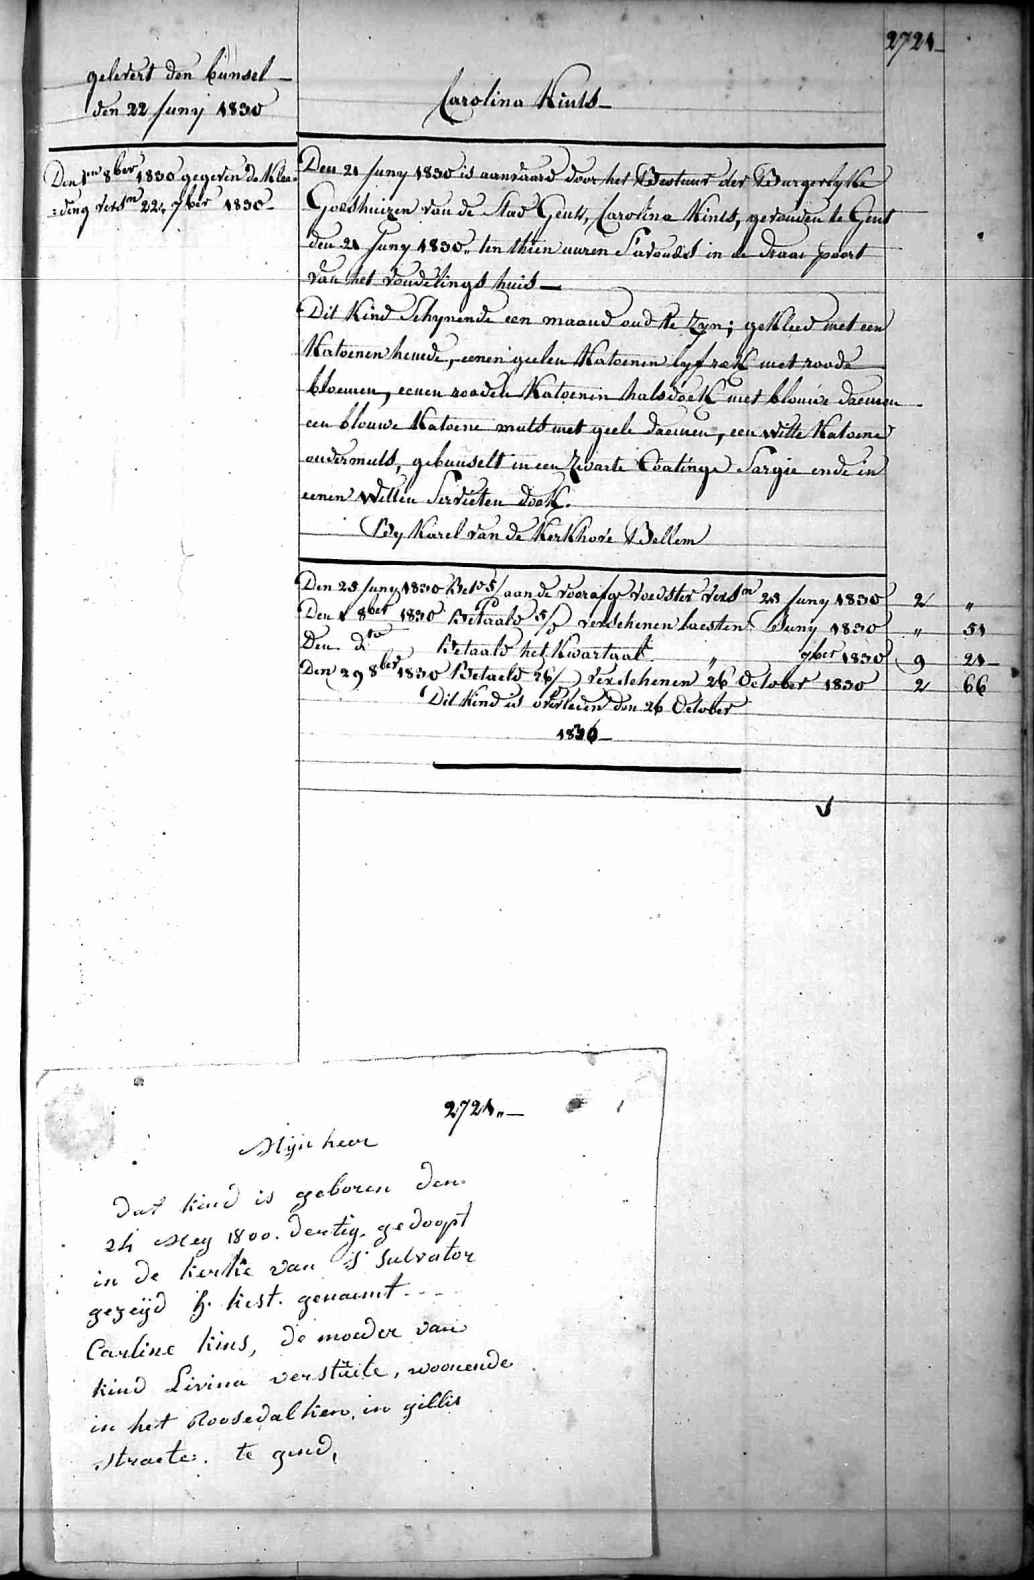 2721
gelevert den bunsel
den 22 Juny 1830
Carolina Kints
Den 1en 8ber 1830 gegeven de Klee=
=ding versn 22, 7ber 1830
Den 21 Juny 1830 is aanvaard door het Bestuur der Burgerlyke
Godshuizen van de Stad Gent, Carolina Kints, gevonden te Gent
den 21 Juny 1830,, ten thien uuren S'avonds in de draai poort
van het vondelings huis
Dit Kind Schynende een maand oud te zyn; gekleed met een
Katoenen hemde, eenen geelen Katoenen lyfrok met roode
bloemen, eenen rooden Katoenen halsdoek met blouwe
een blouwe Katoene muts met geele, een witte Katoene
ondermuts, gebunselt in een Zwarte Coatinge Sargie ende in
eenen Witten Servietten doek.
By Karel van de Kerkhove Bellem
Den 25 Juny 1830 Bet. 5/ aan de voorafge voedster versn 23 Juny 1830 2 "
Den 1 8ber 1830 Betaald 5/ verschenen laesten Juny 1830 " 51
Den dto Betaald het Kwartaal " 7ber 1830 9 21
Den 29 8ber 1830 Betaeld 26/ verschenen 26 October 1830 2 66
Dit Kind is overleden den 26 October
1830
2721,,
Mijn heer
dat kind is geboren den
24 Mey 1800. dertig, gedoopt
in de kerke van St Salvator
gezeijd H. kerst. genaemt
Carline kins, de moeder van
kind Livina verstuite, woonende
in het Roosedalken, in gillis
straete. te gend,